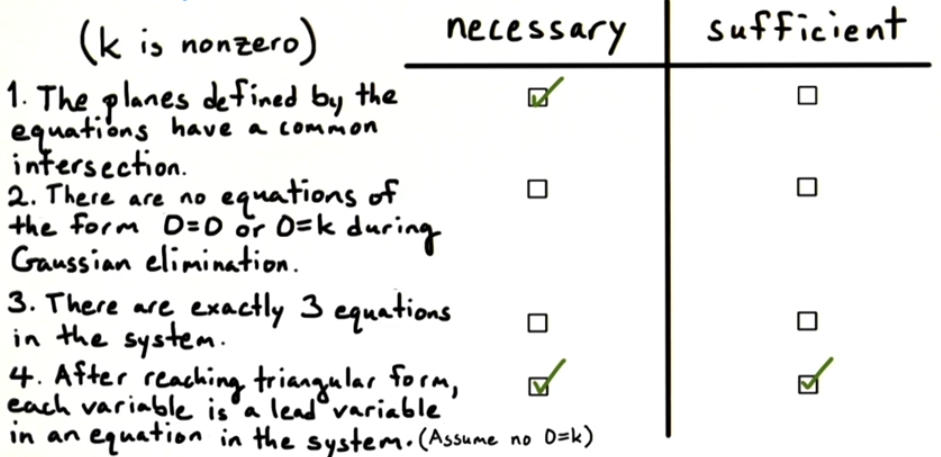 (k is nonzero)
necessary
sufficient
1. The planes defined by the
equations have a common
intersection.
2. There are no equations of
the form 0=0 or 0=k during
Gaussian elimination.
3. There are exactly 3 equations
in the system.
4. After reaching triangular form,
each variable is a lead variable
in an equation in the system. (Assume no 0=k)